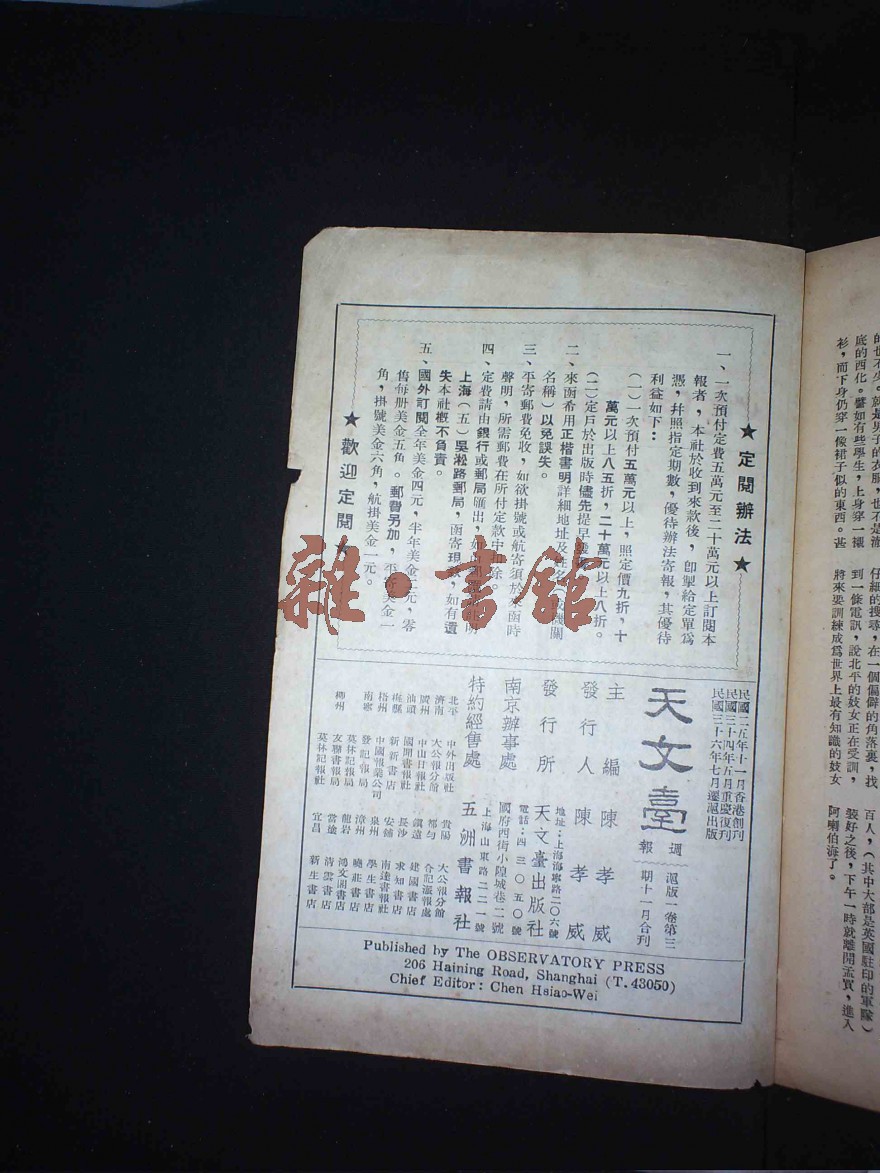 ★定閱辦法★
一、一次預付定費五萬元至二十萬元以上訂閱本
報者，本社於收到來款後，卽掣給定單爲
憑，幷照指定期數，優待辦法寄報，其優待
利益如下：
(一)一次預付五萬元以上，照定價九折，十
萬元以上八五折，二十萬元以上八折。
(二)定戶於出版時儘先提早
二、來函希用正楷書明詳細地址及 關
名稱)以免誤失。
三、平寄郵費免收，如欲掛號或航寄須於來函時
聲明，所需郵費在所付定款中扣除。
四、定費請由銀行或郵局匯出，
上海(五)吳淞路郵局，函寄現 ，如有遺
失本社槪不負責。
五、國外訂閱全年美金四元，半年美金二元，零
售每册美金五角。郵費另加，平寄美金一
角，掛號美金六角，航掛美金一元。
★歡迎定閱★
民國二五年十一月香港創刊
民國三十四年五月重慶復刊
民國三十六年七月遷滬出版
天文臺 週報
滬版一卷第三
期十一月合刊
主編 陳孝威
發行人 陳孝威
發行所 天文臺出版社
地址：上海海寧路二〇六號
電話：四三〇五〇號
南京辦事處 國府西街小隍城巷二號
特約經售處 五洲書報社
上海山東路二二一號
北平 中外出版社
濟南 大公報分館
廣州 中山日報社
汕頭 國閒書報社
梅縣 新新書店
梧州 中國報業公司
南寧 發記報局
莫林記報局
柳州 友聯書報局
莫林記報社
貴陽 大公報分館
都勻 合記派報處
鎭遠 建國書店
長沙 求知書店
安鋪 南達書報社
泉州 學生書店
漳州 曉莊書店
龍岩 鴻文閣書店
當塗 淸雲書店
宜昌 新生書店
Published by The OBSERVATORY PRESS
206 Haining Road, Shanghai (T. 43050)
Chief Editor: Chen Hsiao-Wei
雜·書館
的也不少。就是男子的衣服，也不是澈
底的西化。譬如有些學生，上身穿一襯
衫，而下身仍穿一像裙子似的東西。甚
仔細的搜尋，在一個偏僻的角落裏，找
到一條電訊，說北平的妓女正在受訓，
將來要訓練成爲世界上最有知識的妓女
百人，(其中大部是英國駐印的軍隊)
裝好之後，下午一時就離開孟買，進入
阿喇伯海了。